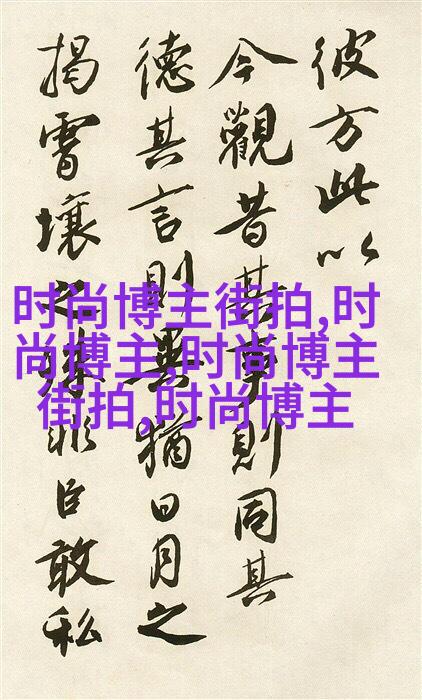 彼方此以
今觀昔其事則同其
德其言則異猶日月之
揭霄壤之殊非臣敢私
时尚博主街拍,时
尚博主,时尚博主
街拍,时尚博主